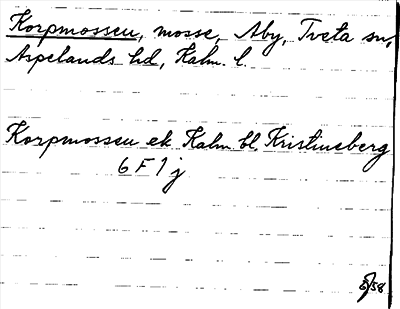 Korpmossen, mosse, Åby, Tveta sn,
Aspelands hd, Kalm. l.
Korpmossen ek Kalm. bl. Kristineberg
6 F 1 j
58